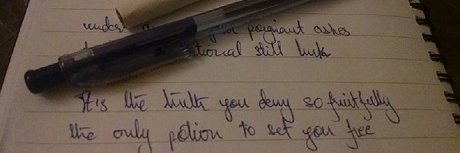 under poignant ashes
still lurk
It is the truth you deny so fruitfully
the only potion to set you free